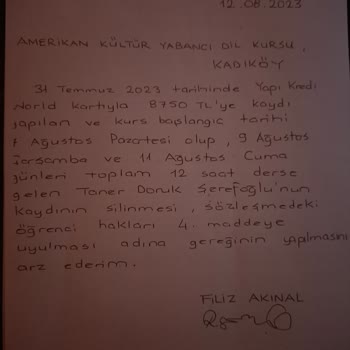 12.08.2023
AMERİKAN KÜLTÜR YABANCI DİL KURSU,
KADIKÖY
31 Temmuz 2023 tarihinde Yapı Kredi
World kartıyla 8750 TL'ye kaydı
yapılan ve kurs başlangıç tarihi
7 Ağustos Pazartesi olup, 9 Ağustos
Çarşamba ve 11 Ağustos Cuma
günleri toplam 12 saat derse
gelen Taner Doruk Şerefoğlu'nun
kaydının silinmesi, sözleşmedeki
öğrenci hakları 4. maddeye
uyulması adına gereğinin yapılmasını
arz ederim.
FİLİZ AKINAL